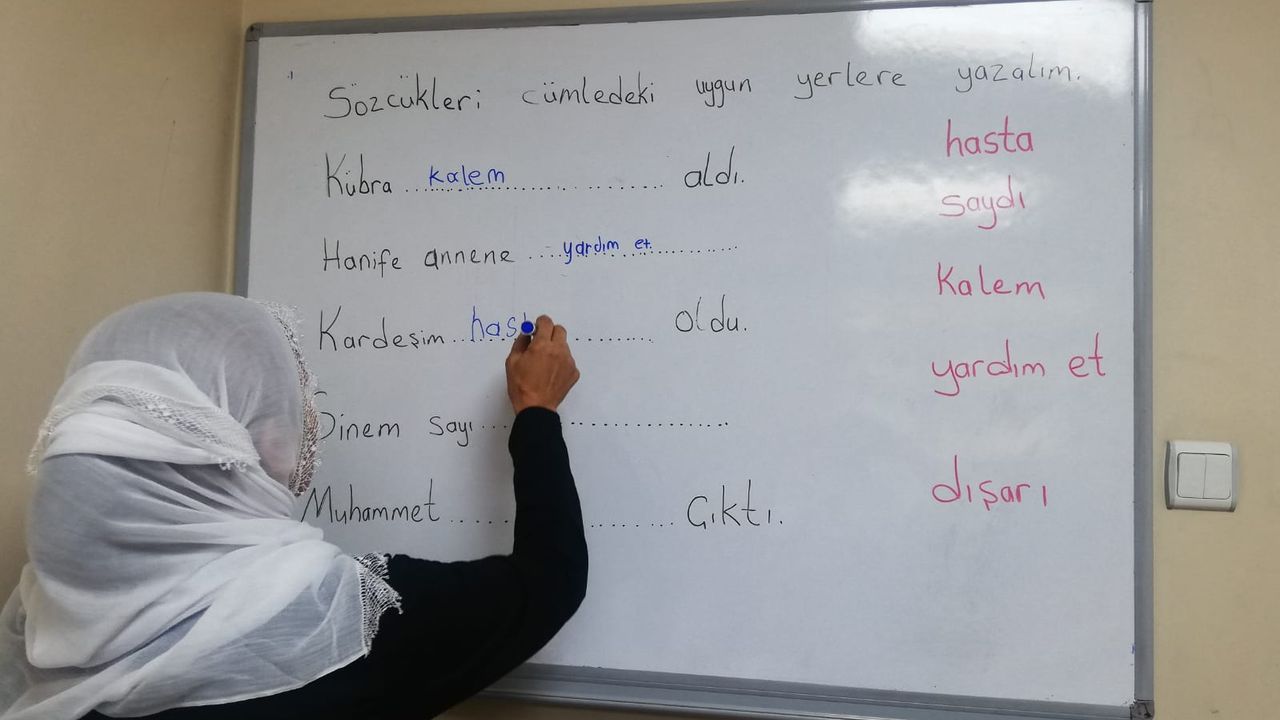 Sözcükleri cümledeki uygun yerlere yazalım.
Kübra ..kalem.................... aldı.
Hanife annene ....yardım et.............
Kardeşim ..has.................. oldu.
Sinem sayı ........................
Muhammet ........................ Çıktı.
hasta
saydı
Kalem
yardım et
dışarı